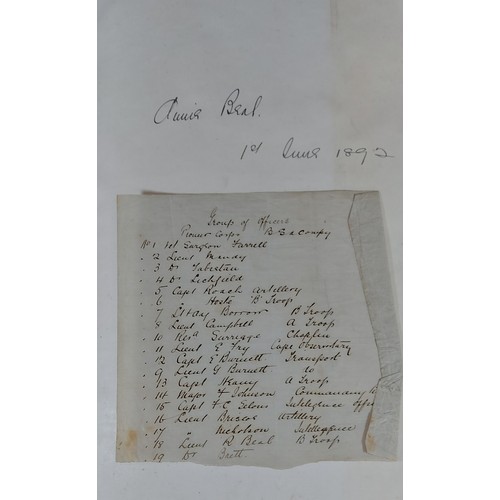 Annie Beal.
1st June 1892
Group of Officers
Pioneer Corps B S A Compy
No 1 Surgeon Farrell
" 2 Lieut Mandy
" 3 Dr Tabuteau
" 4 Dr Lichfield
" 5 Capt Roach Artillery
" 6 " Hoste B Troop
" 7 Lt & Adj Borrow B Troop
" 8 Lieut Campbell A Troop
" 10 Revd Surridge Chaplin
" 11 Lieut E Fry Cape Observatory
" 12 Capt E Burnett Transport
" 9 Lieut G Burnett Do
" 13 Capt Heany A Troop
" 14 Major F Johnson Commanding
" 15 Capt F C Selous Intelligence Offr
" 16 Lieut Briscoe Artillery
" 17 " Nicholson Intelligence
" 18 Lieut R Beal B Troop
" 19 Dr Brett